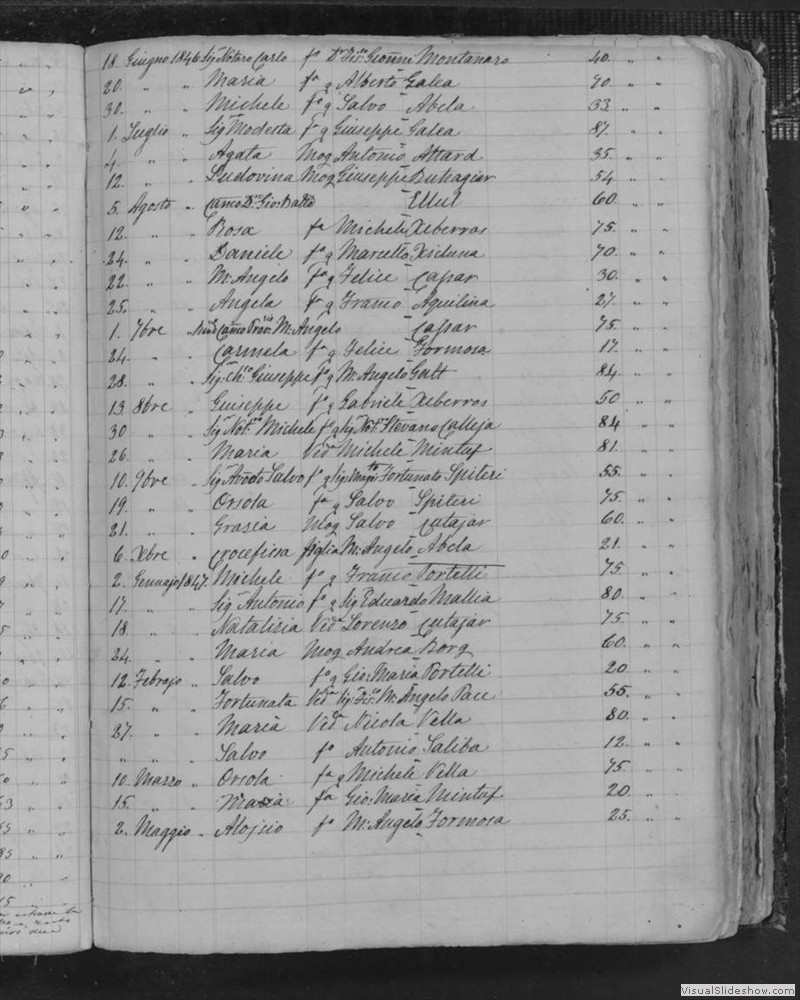 18. Giugno 1846 Sig. Notaro Carlo fo Dr Fis. Gionni Montanaro 40. " "
20. " " Maria fa q Alberto Galea 70. " "
30. " " Michele fo q Salvo Abela 33. " "
1. Luglio " Sig. Modesta fa q Giuseppe Galea 87. " "
4. " " Agata Mog Antonio Attard 35. " "
12. " " Ludovina Mog Giuseppe Buhagiar 54. " "
5. Agosto " Canco Dn Gio: Batta Ellul 60. " "
12. " " Rosa fa Michele Xeberras 75. " "
24. " " Daniele fo q Marcello Xicluna 70. " "
22. " " M: Angelo fo q Felice Caspar 30. " "
25. " " Angela fa q Franco Aquilina 27. " "
1. 7bre " Canco M: Angelo Caspar 75. " "
24. " " Carmela fa q Felice Formosa 17. " "
28. " " Sig. Giuseppe fo q M: Angelo Galt 84. " "
13. 8bre " Guiseppe fo q Gabriele Xeberras 50 " "
30 " " Sig. Notro Michele fo q Sig. Notro Stevano Calleja 84. " "
26. " " Maria Veda Michele Mintuf 81. " "
10. 9bre " Sig. Avocto Salvo fo q Sig. Fortunato Spiteri 55. " "
19. " " Orsola fa q Salvo Spiteri 75. " "
21. " " Grazia Mog Salvo Cutajar 60. " "
6. Xbre " Crocefissa figlia M: Angelo Abela 21. " "
2. Gennajo 1847. Michele fo q Franco Portelli 75. " "
17. " " Sig. Antonio fo q Sig. Eduardo Mallia 80. " "
18. " " Natalizia Veda Lorenzo Cutajar 75. " "
24. " " Maria Mog Andrea Borg 60. " "
12. Febrajo " Salvo fo q Gio: Maria Portelli 20. " "
15. " " Fortunata Veda Sig. M: Angelo Pace 55. " "
27. " " Maria Veda Nicola Vella 80. " "
" " " Salvo fo Antonio Saliba 12. " "
10. Marzo " Orsola fa q Michele Vella 75. " "
15. " " Maria fa Gio: Maria Mintuf 20. " "
2. Maggio " Alojsio fo M: Angelo Formosa 25. " "
VisualSlideshow.com